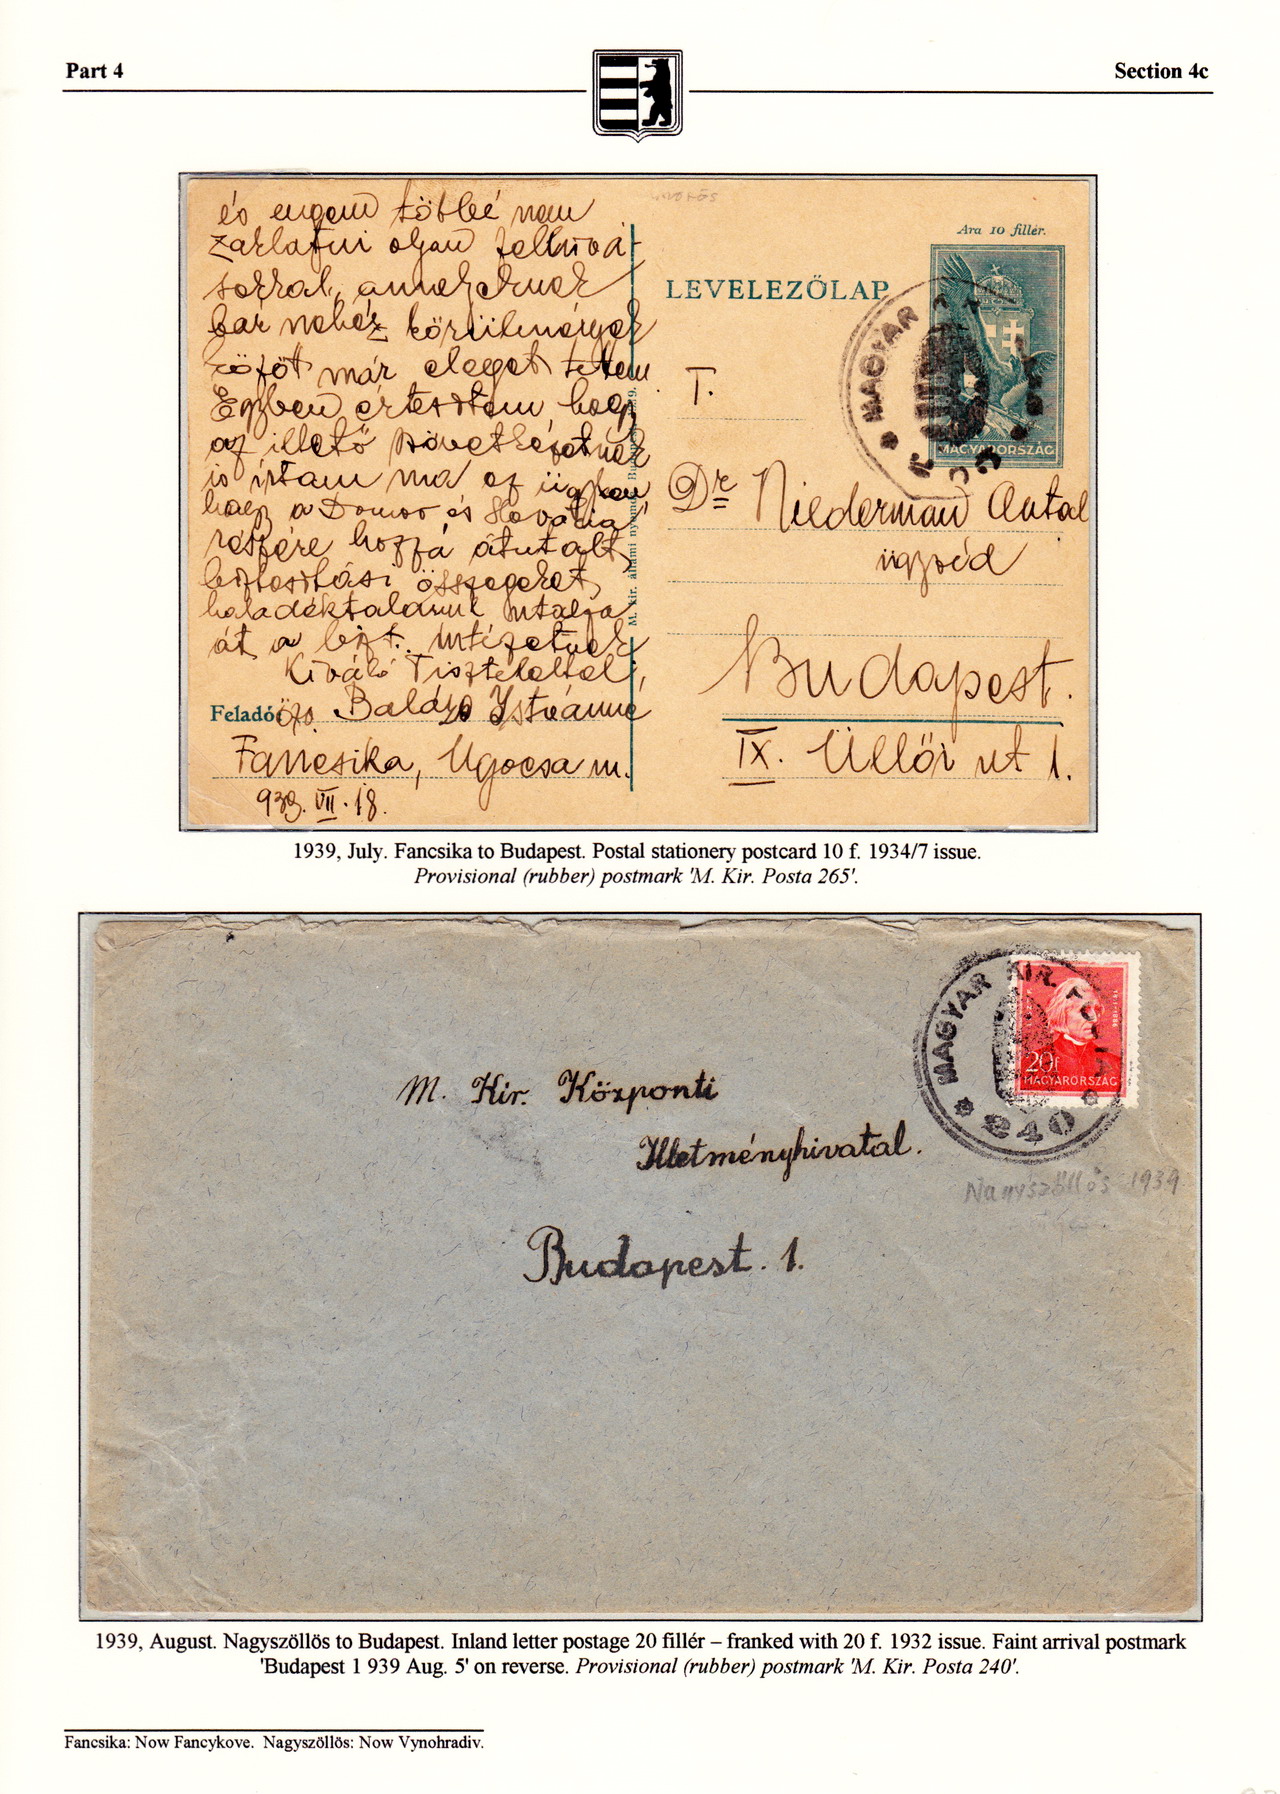 Part 4
Section 4c
és engem többé nem
zaklatni olyan felhivá-
sokkal, annak
bár nehéz körülmények
között már eleget tettem
Egyben értesitem, hogy
az illető szövetkezetnek
is irtam ma ez ügyben
hogy a Domus és Slovakia
részére hozzá átutalt
biztositási összegeket,
haladéktalanul utalja
át a bizt. intézetnek
Kiváló Tisztelettel,
Feladó: özv Balázs Istvánné
Fancsika, Ugocsa m.
939. VII. 18.
M. kir. állami nyomda, Budapest
Ára 10 fillér.
LEVELEZŐLAP
MAGYAR
MAGYARORSZÁG
T.
Dr Niederman Antal
ügyvéd
Budapest.
IX. Üllői ut 1.
1939, July. Fancsika to Budapest. Postal stationery postcard 10 f. 1934/7 issue.
Provisional (rubber) postmark 'M. Kir. Posta 265'.
MAGYAR KIR. POSTA
240
20f
MAGYARORSZÁG
M. Kir. Központi
Illetményhivatal.
Nagyszöllős 1939
Budapest. 1.
1939, August. Nagyszöllös to Budapest. Inland letter postage 20 fillér – franked with 20 f. 1932 issue. Faint arrival postmark
'Budapest 1 939 Aug. 5' on reverse. Provisional (rubber) postmark 'M. Kir. Posta 240'.
Fancsika: Now Fancykove. Nagyszöllös: Now Vynohradiv.